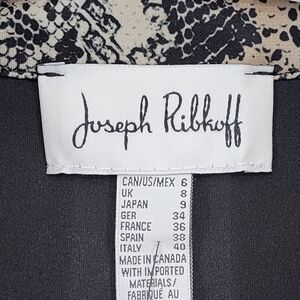 Joseph Ribkoff
CAN/US/MEX 6
UK 8
JAPAN 9
GER 34
FRANCE 36
SPAIN 38
ITALY 40
MADE IN CANADA
WITH IMPORTED
MATERIALS/
FABRIQUÉ AU